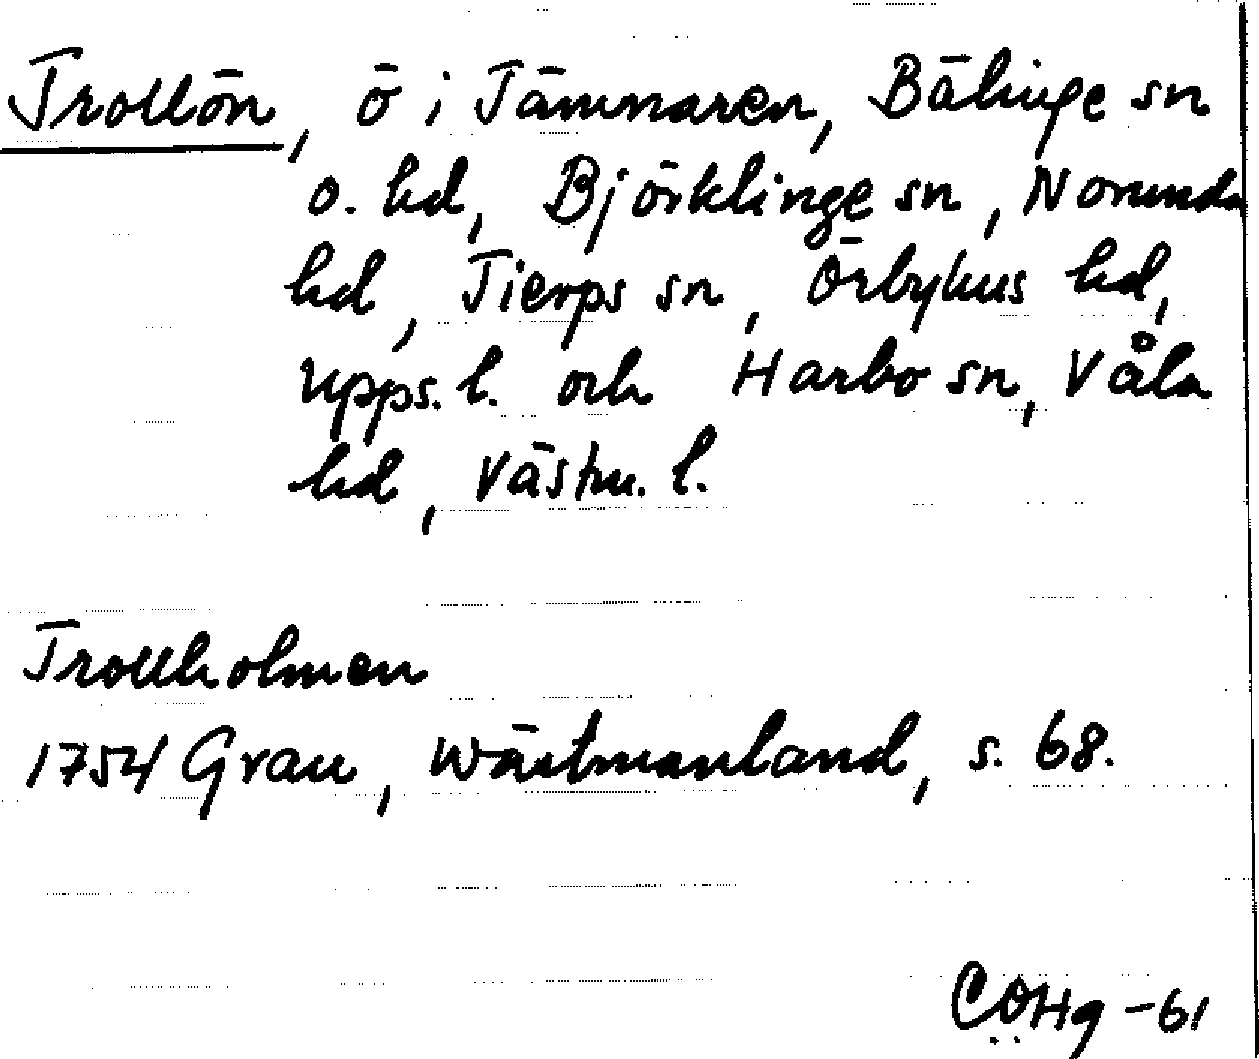 Trollön, ö i Tämnaren, Bälinge sn
o. hd, Björklinge sn, Norunda
hd, Tierps sn, Örbyhus hd,
Upps. l. och Harbo sn, Våla
hd, Västm. l.
Trollholmen
1754 Grau, Wästmanland, s. 68.
COHg -61